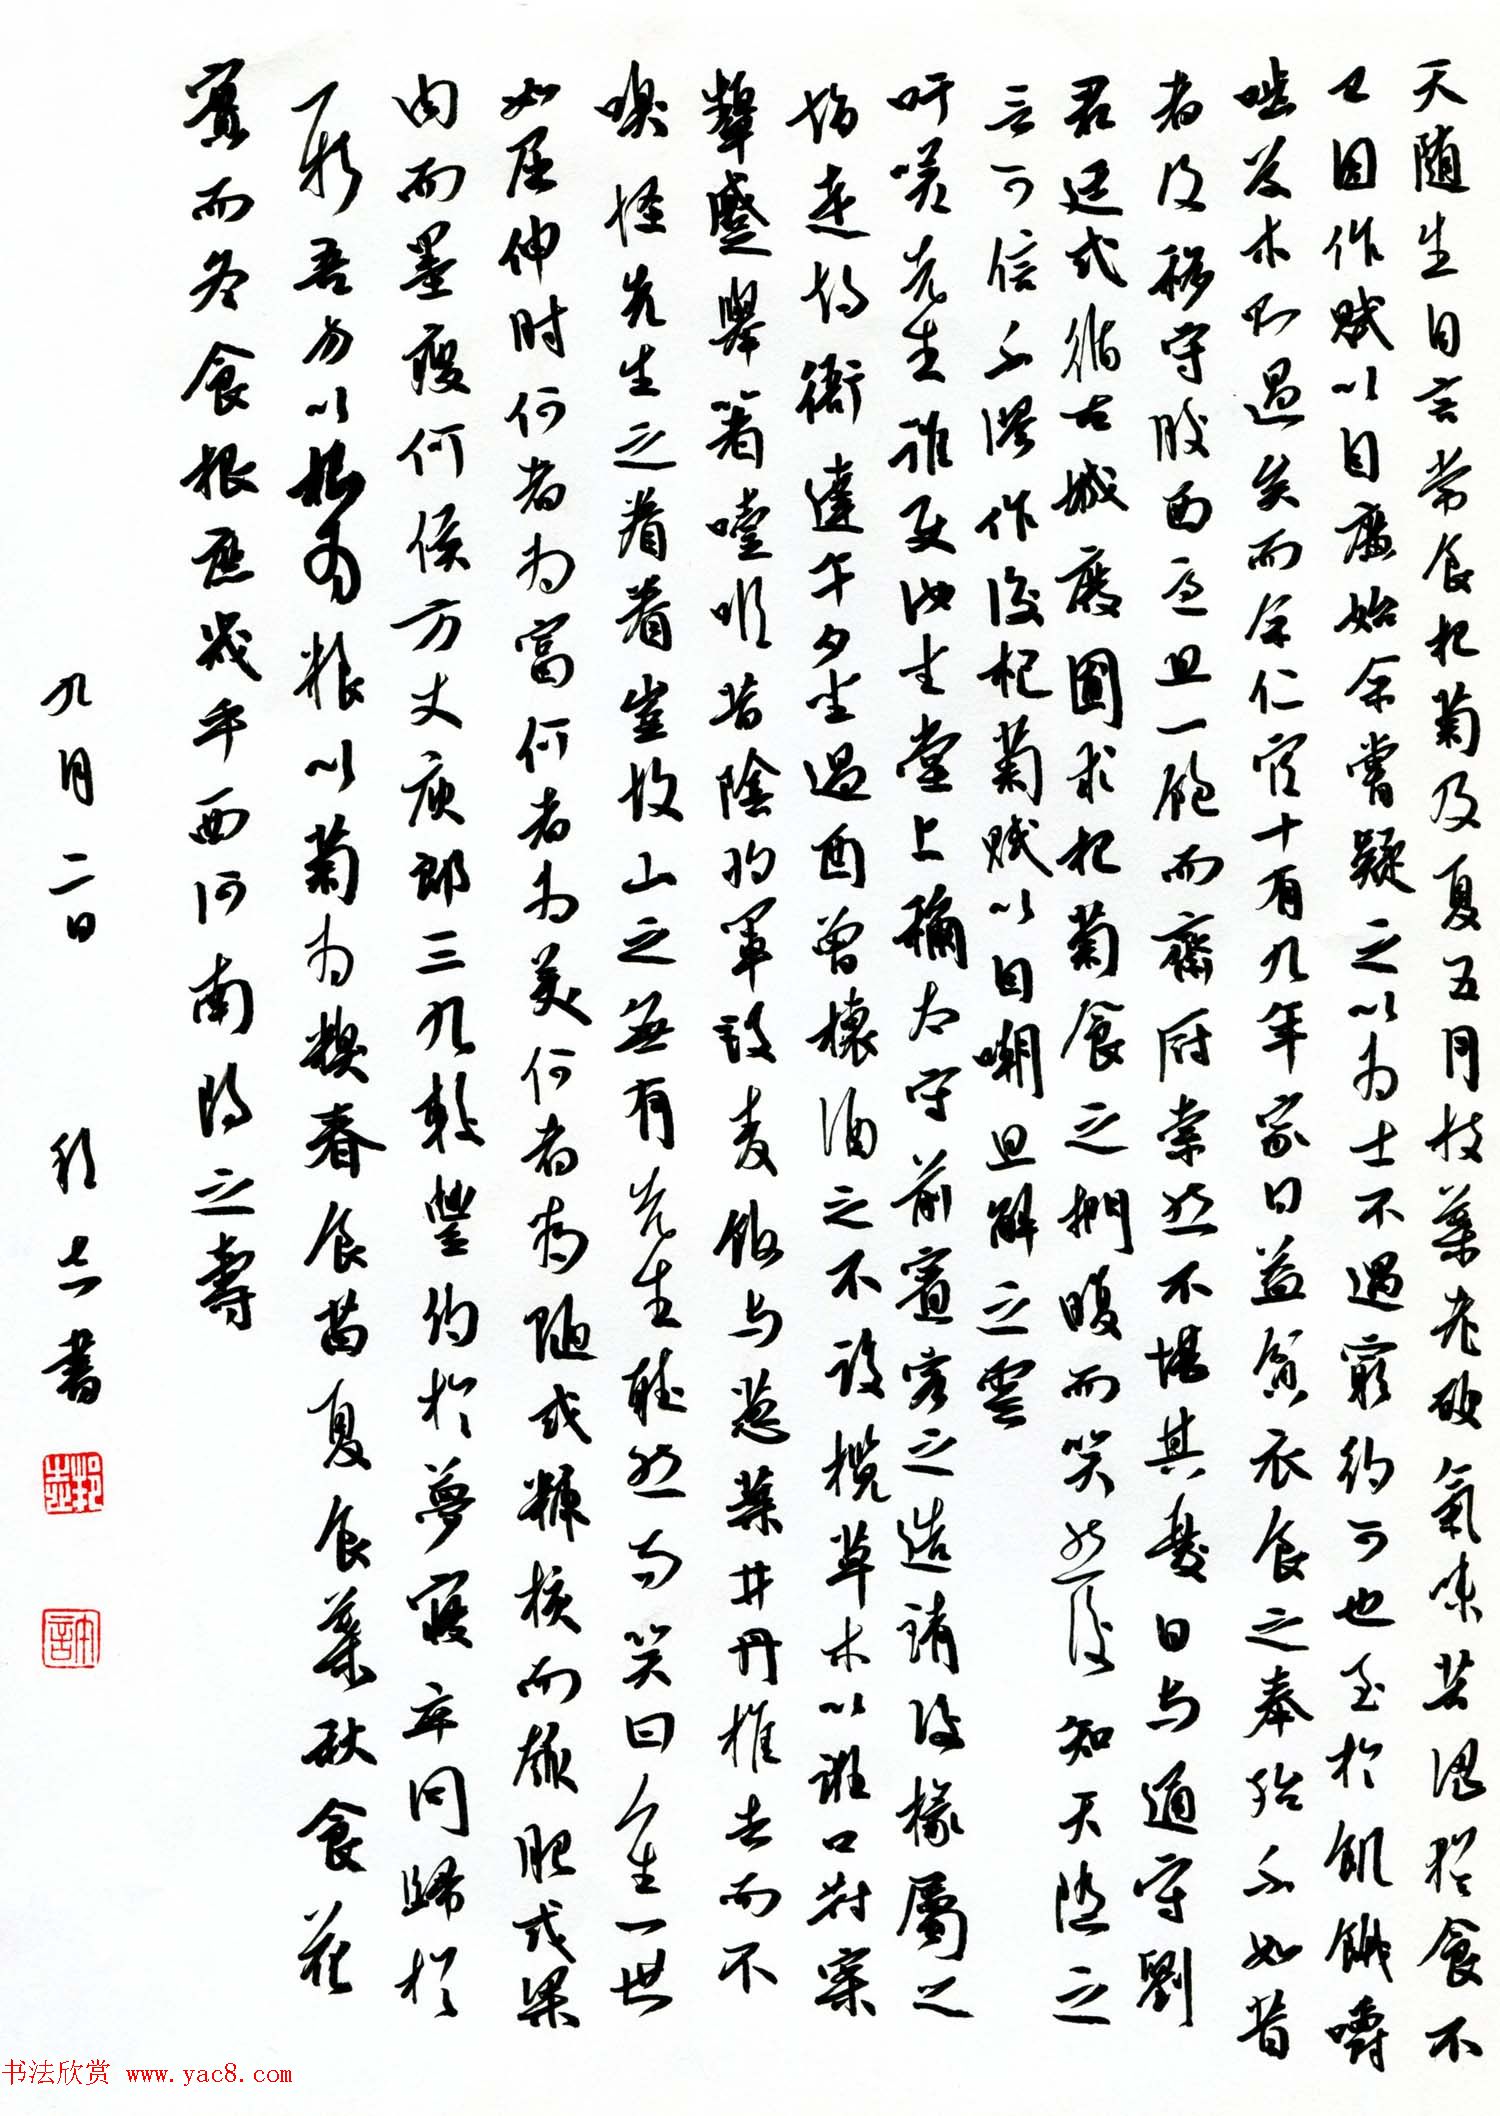 天随生自言常食杞菊及夏五月枝葉老硬氣味苦澀猶食不
已因作賦以自廣始余嘗疑之以为士不遇窮約可也至於飢餓嚼
嚙草木则過矣而余仕宦十有九年家日益貧衣食之奉殆不如昔
者及移守胶西意且一飽而齋厨索然不堪其憂日与通守劉
君廷式循古城廢圃求杞菊食之捫腹而笑然後知天随之
言可信不謬作後杞菊賦以自嘲且解之雲
吁嗟先生谁使汝坐堂上稱太守前賓客之造請後掾屬之
趋走朝衙達午夕坐過酉曾杯酒之不設攬草木以誑口对案
顰蹙舉箸噎嘔昔陰将軍設麦飯与葱葉井丹推去而不
嗅怪先生之眷眷豈故山之無有先生听然而笑曰人生一世
如屈伸肘何者为富何者为美何者为陋或糠核而瓠肥或梁
肉而墨瘦何侯方丈庾郎三九較豐約於夢寐卒同歸於
一朽吾方以杞为糧以菊为糗春食苗夏食葉秋食花
實而冬食根庶幾乎西河南陽之壽
九月二日 邦志書
书法欣赏 www.yac8.com